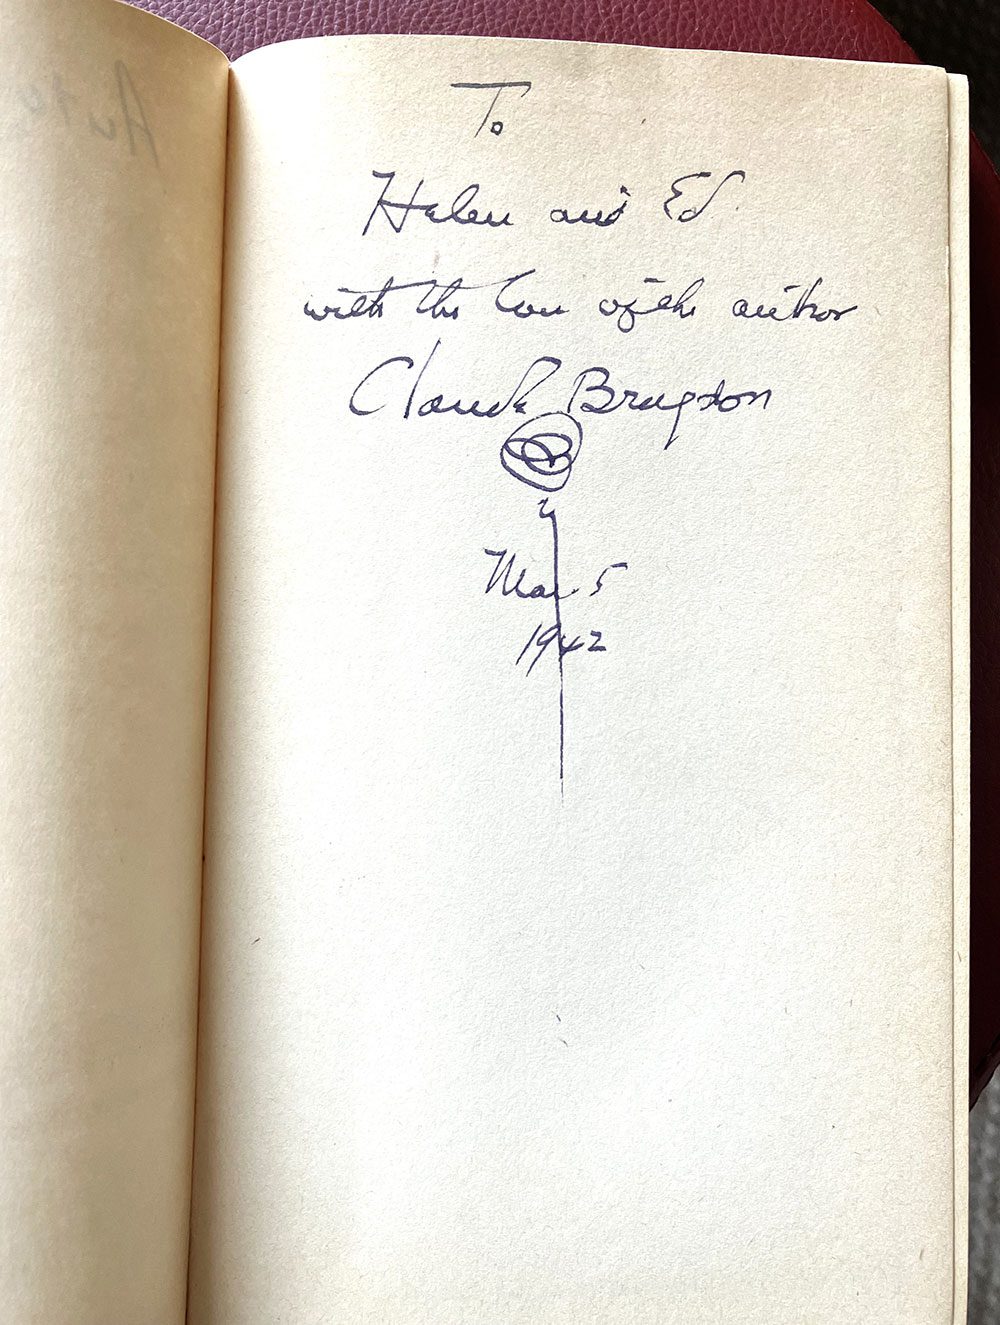 To
Helen and Ed
with the love of the author
Claude Bragdon
Mar 5
1942